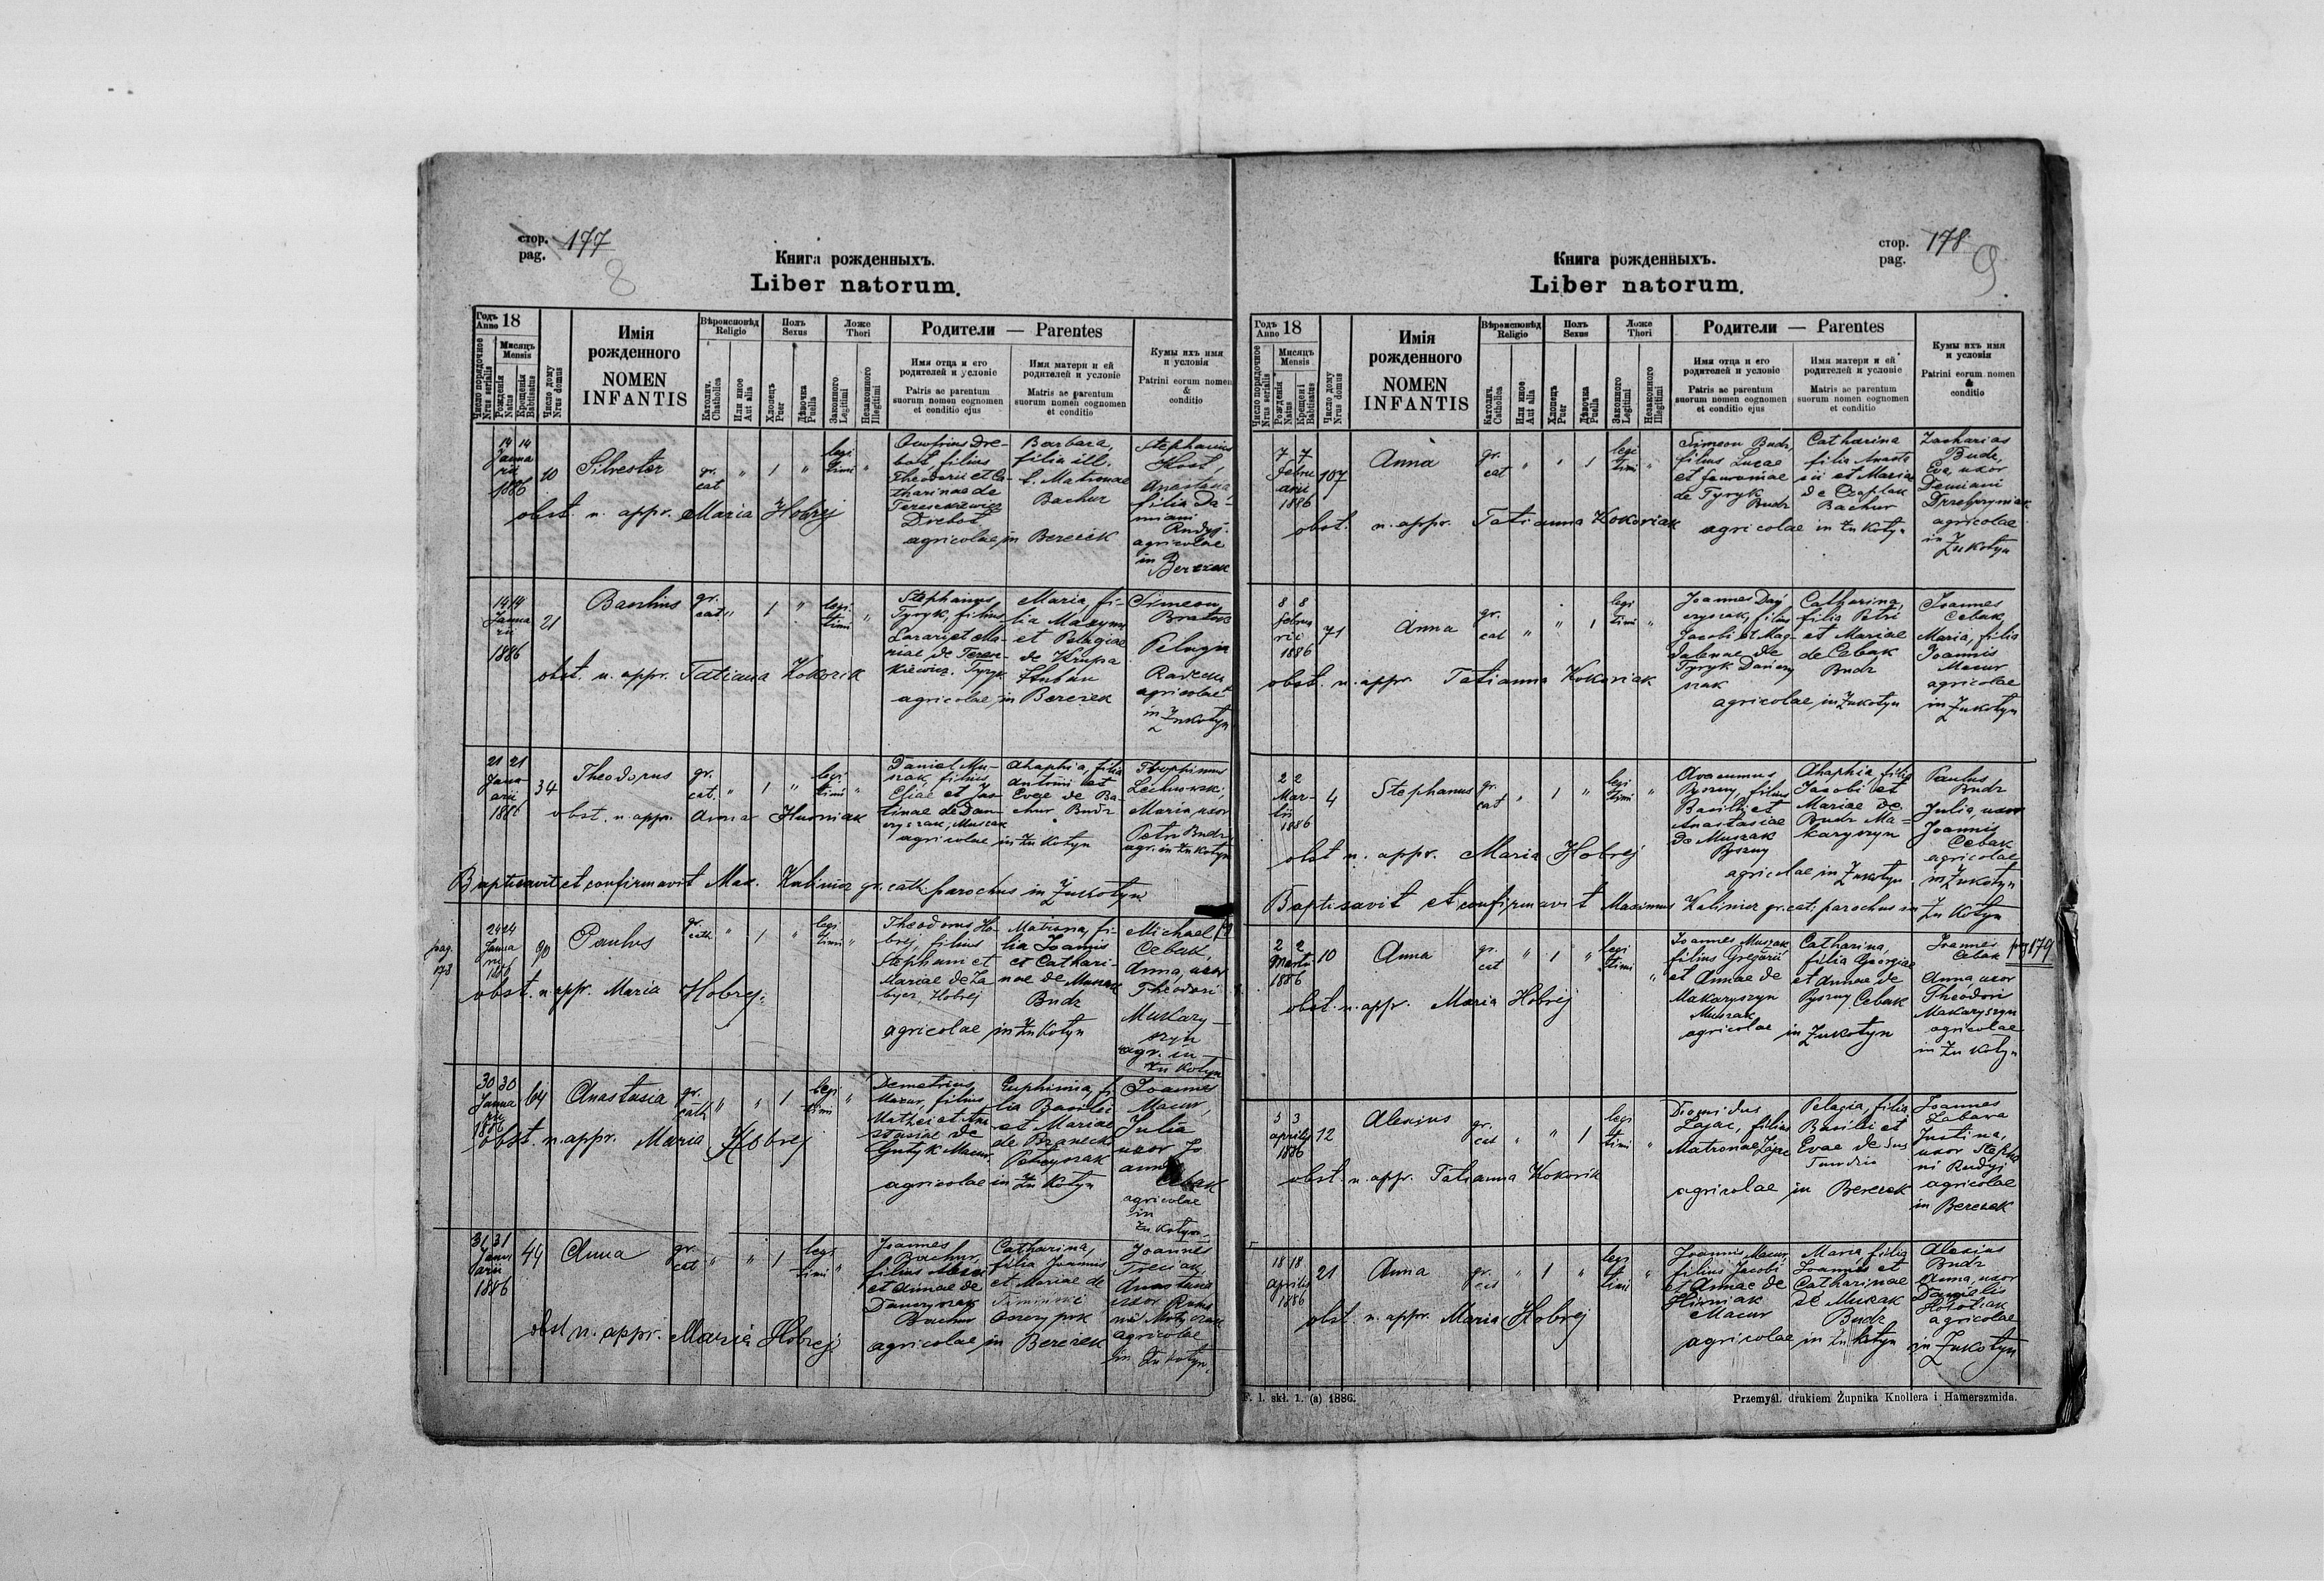 стор. 177
pag.
8
Книга рожденныхъ.
Liber natorum.
Годъ 18
Anno
Мисяцъ
Mensis
Число порядочное
Nrus serialis
Рожденія
Natus
Крещенія
Babtisatus
Число дому
Nrus domus
Имія
рожденного
NOMEN
INFANTIS
Вѣроисповѣд
Religio
Католич.
Chatholica
Или иное
Aut alia
Полъ
Sexus
Хлопецъ
Puer
Дѣвочка
Puella
Ложе
Thori
Законного
Legitimi
Незаконного
Illegitimi
Родители — Parentes
Имя отца и его
родителей и условіе
Patris ac parentum
suorum nomen cognomen
et conditio ejus
Имя матери и ей
родителей и условіе
Matris ac parentum
suorum nomen cognomen
et conditio
Кумы ихъ имя
и условія
Patrini eorum nomen
&
conditio
14 14
Janua
rii
1886
10
Silvester
gr.
cat
" 1 "
legi
timi "
Onofrius Dre-
bot, filius
Theodorii et Ca-
tharinae de
Tereszkiewicz
Drebot
Barbara,
filia ill.
t. Matronae
Bachur
agricolae in Berezek
Stephanus
Host,
Anastasia
filia Da-
miani
Rudyj
agricolae
in
Berezek
obst. n. appr. Maria Hobrej
14 14
Janua
rii
1886
21
Basilius
gr.
cat " 1 "
legi
timi "
Stephanus
Tyryk, filius
Lazari et Ma-
riae de Teresz-
kiewicz. Tyryk
Maria, fi-
lia Maxymi
et Pelagiae
de Krupa
agricolae in Berezek
Simeon
Pelagia
agricolae
in Żukotyn
obst. n. appr. Tatiana Kokorik
21 21
Janu-
arii
1886
34
Theodorus
gr.
cat. " 1 "
legi
timi "
Daniel Mu-
szak, filius
Eliae et Jus-
tinae de Dan-
czyszak, Muszak
Ahaphia, filia
Antonii et
Evae de Ba-
chur Budz
agricolae in Żukotyn
Trophimus
Maria uxor
Petri Budz
agr. in Żukotyn
obst. n. appr. Anna Husniak
Baptisavit et confirmavit Max. Kalinicz gr. cath. parochus in Żukotyn
pag.
178
24 24
Janua
rii
1886
90
Paulus
gr.
cath " 1 "
legi
timi "
Theodorus Ho-
brej, filius
Stephani et
Mariae de Za
Hobrej
Matrona, fi-
lia Joannis
et Cathari-
nae de Muszak
Budz
agricolae in Żukotyn
Michael
Cebak,
Anna, uxor
Theodori
Makary-
szyn
agr. in
Żukotyn
obst. n. appr. Maria Hobrej
30 30
Janua
rii
1886
64
Anastasia
gr.
cath " " 1
legi
timi "
Demetrius
Macur, filius
Mathei et Ana
stasiae de
Gutyk Macur.
Euphimia, fi
lia Basilii
et Mariae
de Branecki
Petryszak
agricolae in Żukotyn
Joannes
Macur,
Julia
uxor Jo
annis
Cebak
agricolae
in
Żukotyn
obst. n. appr. Maria Hobrej
31 31
Janu
arii
1886
44
Anna
gr.
cat " " 1
legi
timi "
Joannes
Bachur,
filius Alexii
et Annae de
Danczyszak
Bachur
Catharina,
filia Joannis
et Mariae de
agricolae in Berezek
Joannes
Treciak,
Anastasia
uxor
agricolae
in Żukotyn.
obst n. appr. Maria Hobrej
стор. 178
pag.
9
Книга рожденныхъ.
Liber natorum.
Годъ 18
Anno
Мисяцъ
Mensis
Число порядочное
Nrus serialis
Рожденія
Natus
Крещені
Babtisatus
Число дому
Nrus domus
Имія
рожденного
NOMEN
INFANTIS
Вѣроисповѣд
Religio
Католич.
Catholica
Или иное
Aut alia
Полъ
Sexus
Хлопецъ
Puer
Дѣвочка
Puella
Ложе
Thori
Законного
Legitimi
Незаконного
Illegitimi
Родители — Parentes
Имя отца и его
родителей и условіе
Patris ac parentum
suorum nomen cognomen
et conditio ejus
Имя матери и ей
родителей и условіе
Matris ac parentum
suorum nomen cognomen
et conditio
Кумы ихъ имя
и условія
Patrini eorum nomen
&
conditio
7 7
Febru
arii
1886
107
Anna
gr.
cat " " 1
legi
timi "
Simeon Budz,
filius Lucae
et Fevroniae
de Tyryk
Budz
Catharina
filia Anasta
sii et Mariae
de Czaplak
Bachur
agricolae in Żukotyn
Zacharias
Budz,
Eva, uxor
Demiani
agricolae
in
Żukotyn
obst. n. appr. Tatianna Kokoriak
8 8
Febru
rii
1886
71
Anna
gr.
cat " " 1
legi
timi "
Joannes Dań
czyszak, filius
Jacobi et Mag-
dalenae de
Tyryk Dańczy
szak
Catharina,
filia Petri
et Mariae
de Cebak
Budz
agricolae in Żukotyn
Joannes
Cebak,
Maria, filia
Joannis
Macur
agricolae
in Żukotyn
obst. n. appr. Tatianna Kokoriak
2 2
Mar-
tii
1886
4
Stephanus
gr.
cat " 1 "
legi
timi "
Avacumus
Pyszny, filius
Basilii et
Anastasiae
de Muszak
Pyszny
Ahaphia, filia
Jacobi et
Mariae de
Budz Ma-
karyszyn
agricolae in Żukotyn
Paulus
Budz
Julia, uxor
Joannis
Cebak
agricolae
in Żukotyn
obst n. appr. Maria Hobrej
Baptisavit et confirmavit Maximus Kalinicz gr. cat. parochus in Żukotyn
2 2
Martii
1886
10
Anna
gr.
cat " 1 "
legi
timi "
Joannes Muszak
filius Gregorii
et Annae de
Makaryszyn
Muszak
Catharina,
filia Georgiae
et Annae de
Pyszny Cebak
agricolae in Żukotyn
Joannes
Cebak
Anna, uxor
Theodori
Makaryszyn
agricolae
in Żukotyn
pag 179
obst. n. appr. Maria Hobrej
3 3
aprilis
1886
12
Alexius
gr.
cat " " 1
legi
timi "
Diomidus
Zajac, filius
Matronae Zajac
Pelagia, filia
Basilii et
Evae de Sus
agricolae in Berezek
Joannes
Zabawa
Justina,
uxor Stepha
ni Rudyj
agricolae
in Berezek
obst. n. appr. Tatianna Kokorik
18 18
Aprilis
1886
21
Anna
gr.
cat " 1 "
legi
timi "
Joannis Macur,
filius Jacobi
et Annae de
Hirniak
Macur
Maria, filia
Joannis et
Catharinae
de Muszak
Budz
agricolae in Żukotyn
Alexius
Budz
Anna, uxor
Danielis
agricolae
in Żukotyn
obst. n. appr. Maria Hobrej
F. l. skł. 1. (a) 1886.
Przemyśl. drukiem Żupnika Knollera i Hamerszmida.